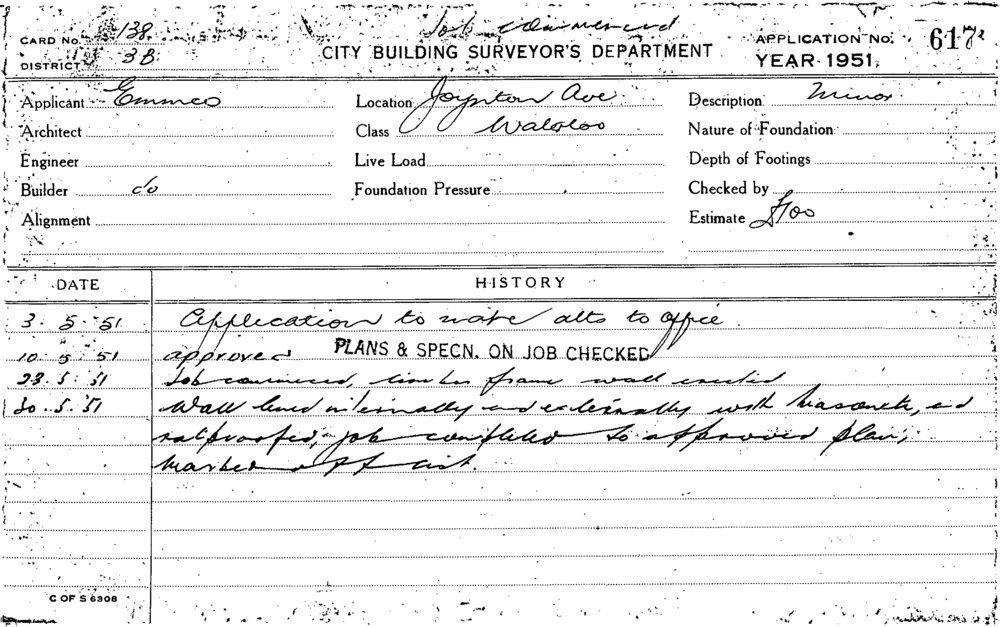 Job commenced
CARD NO. 138 CITY BUILDING SURVEYOR'S DEPARTMENT APPLICATION NO. 617
DISTRICT 3B YEAR 1951.
Applicant Emmco Location Joynton Ave Description Minor
Architect Class Waterloo Nature of Foundation
Engineer Live Load Depth of Footings
Builder do Foundation Pressure Checked by
Alignment Estimate £100
DATE HISTORY
3.5.51 Application to make alts to office.
10.5.51 approved PLANS & SPECN. ON JOB CHECKED
23.5.51 Job commenced, timber frame wall erected
30.5.51 Wall lined internally and externally with masonite, and
ratproofed, job completed to approved plan,
marked off list.
C OF S 6308